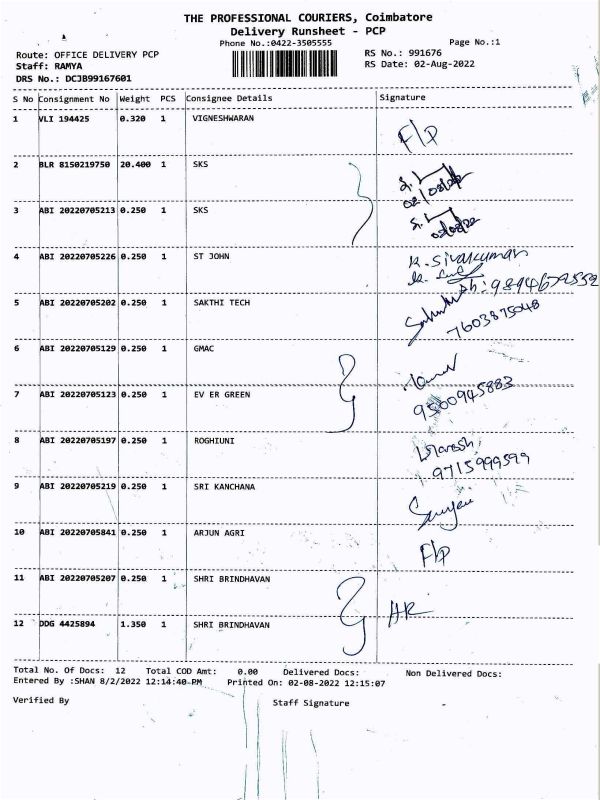 THE PROFESSIONAL COURIERS, Coimbatore
Delivery Runsheet - PCP
Phone No.:0422-3505555
Page No.:1
Route: OFFICE DELIVERY PCP
RS No.: 991676
Staff: RAMYA
RS Date: 02-Aug-2022
DRS No.: DCJB99167601
S No Consignment No Weight PCS Consignee Details Signature
1 VLI 194425 0.320 1 VIGNESHWARAN
F/P
2 BLR 8150219750 20.400 1 SKS
02/08/22
3 ABI 20220705213 0.250 1 SKS
02/08/22
4 ABI 20220705226 0.250 1 ST JOHN K. Sivakumar
Ph: 9894679552
5 ABI 20220705202 0.250 1 SAKTHI TECH
7603875048
6 ABI 20220705129 0.250 1 GMAC
7 ABI 20220705123 0.250 1 EV ER GREEN
9500945883
8 ABI 20220705197 0.250 1 ROGHIUNI
9715999599
9 ABI 20220705219 0.250 1 SRI KANCHANA
10 ABI 20220705841 0.250 1 ARJUN AGRI
F/P
11 ABI 20220705207 0.250 1 SHRI BRINDHAVAN
12 DDG 4425894 1.350 1 SHRI BRINDHAVAN
Total No. Of Docs: 12 Total COD Amt: 0.00 Delivered Docs: Non Delivered Docs:
Entered By :SHAN 8/2/2022 12:14:40 PM Printed On: 02-08-2022 12:15:07
Verified By Staff Signature